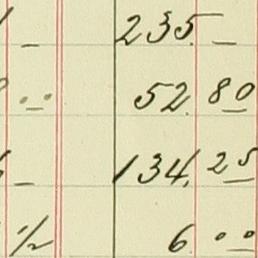 — 235. —
52 80
— 134. 25
½ 6 00